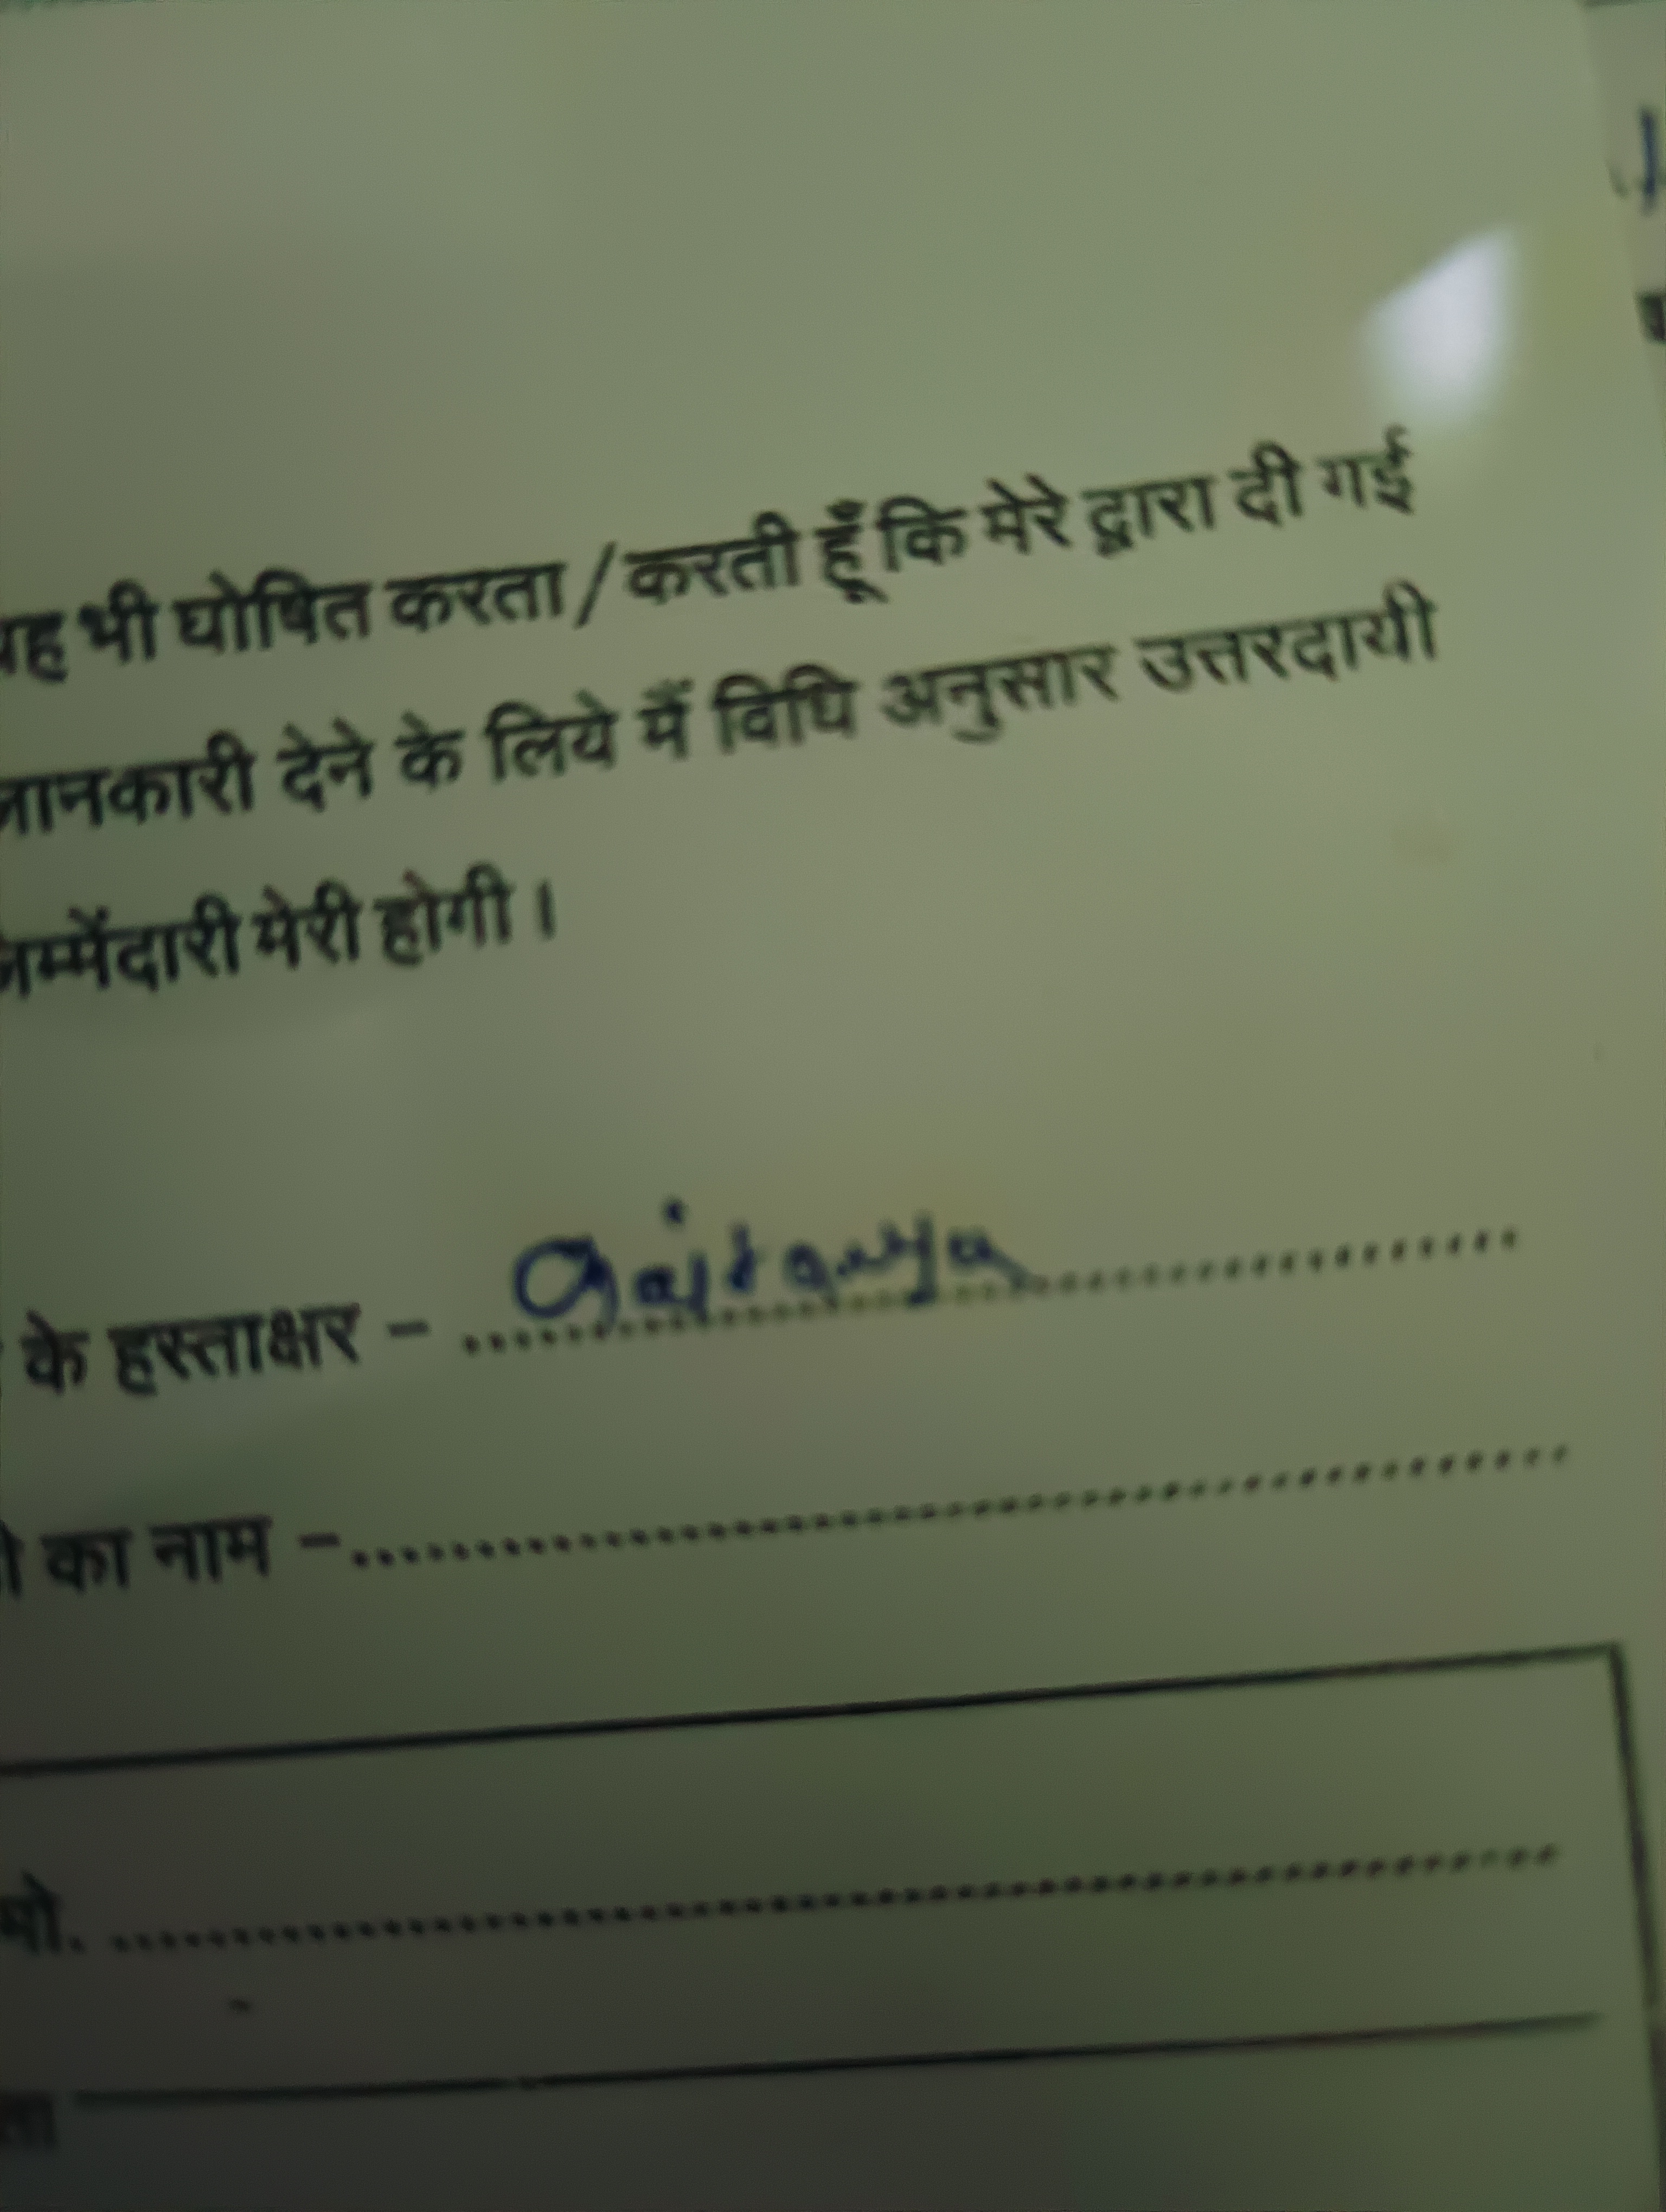 यह भी घोषित करता/करती हूँ कि मेरे द्वारा दी गई
जानकारी देने के लिये मैं विधि अनुसार उत्तरदायी
जिम्मेंदारी मेरी होगी।
के हस्ताक्षर -
का नाम -
मो.